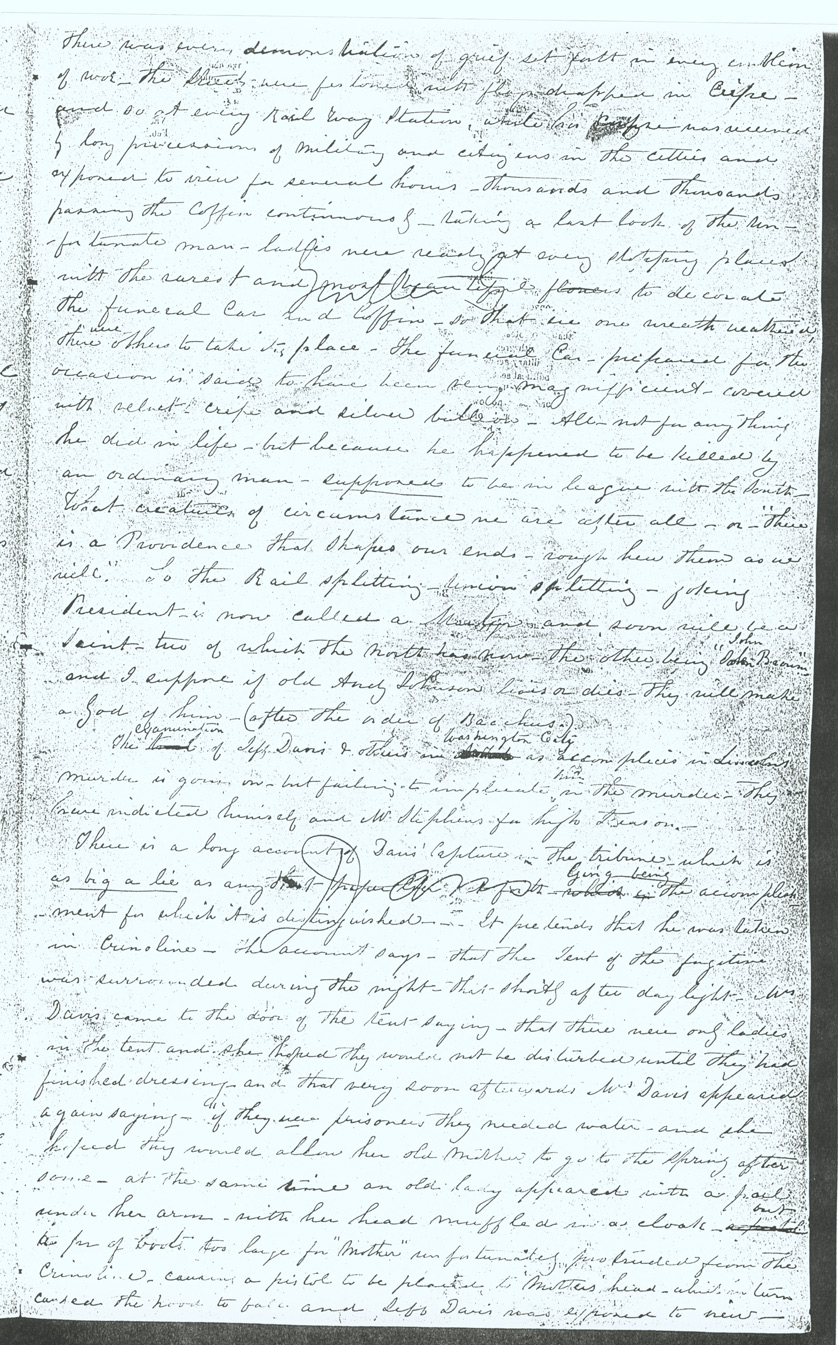 There was every demonstration of grief set forth in every emblem
of woe - the streets were festooned with flags drapped in Crape -
and so at every Rail Way Station, while his Corpse was received
by long processions of Military and citizens in the citties and
exposed to view for several hours - thousands and thousands
passing the Coffin continuously - taking a last look of the un-
-fortunate man - ladies were ready at every stopping place
with the rarest and most beautiful flowers to decorate
the funeral Car and Coffin - so that as one wreath withered,
there were others to take its place - The funeral Car - prepared for the
occasion is said to have been very magnifficient - covered
with velvet crepe and silver bullion - All - not for any thing
he did in life - but because he happened to be killed by
an ordinary man - supposed to be in league with the South -
What creatures of circumstance we are after all - or - "there
is a Providence that shapes our ends - rough hew them as we
will". So the Rail splitting - Union splitting - joking
President - is now called a Martyr and soon will be a
Saint - two of which the north has now - the other being "John Brown"
and I suppose if old Andy Johnson lives or dies - they will make
a God of him - (after the order of Bacchus.)
The examination of Jeff Davis & others in Washington City as accomplices in Lincolns
murder is going on - but failing to implicate him in the murder - they
have indicted himself and Mr Stephens for high Treason. -
There is a long account of Davis' Capture in the tribune - which is
as big a lie as any that paper - Lying being the accomplish
-ment for which it is distinguished - - It pretends that he was taken
in Crinoline - The account says - that the Tent of the fugitive
was surrounded during the night - that shortly after day light - Mrs
Davis came to the door of the tent saying - that there were only ladies
in the tent and she hoped they would not be disturbed until they had
finished dressing - and that very soon afterwards Mrs Davis appeared
again saying - if they were prisoners they needed water - and she
hoped they would allow her old Mother to go to the Spring after
some - at the same time an old lady appeared with a pail
under her arm - with her head muffled in a cloak - but
a pr of boots too large for "Mother" unfortunately protruded from the
Crinoline - causing a pistol to be placed to Mothers head - which in turn
caused the hood to fall and Jeff Davis was exposed to view -